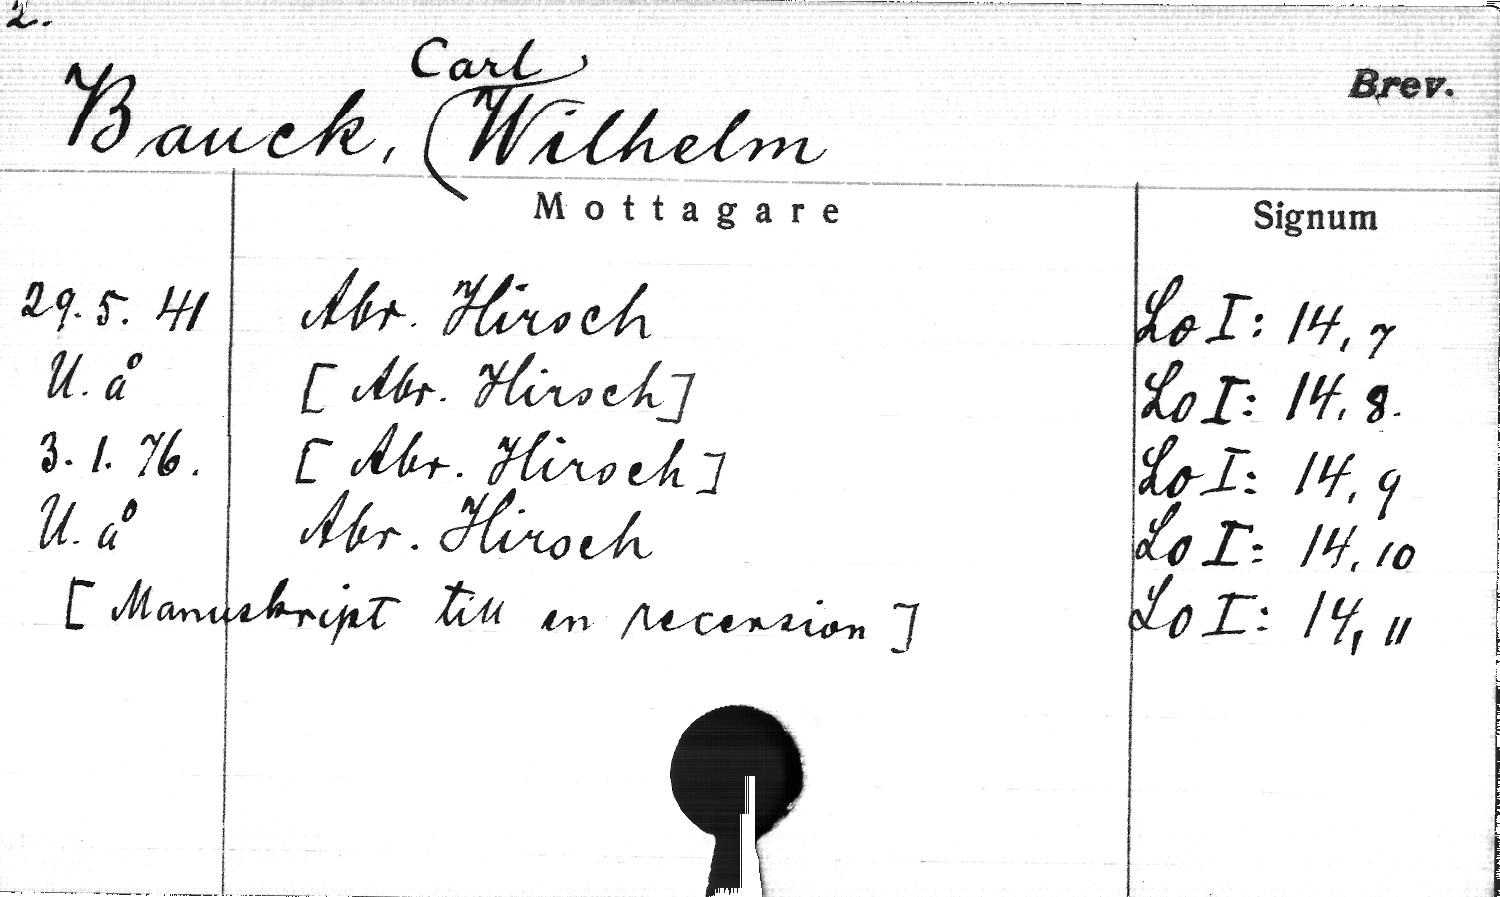 2.
Carl
Brev.
Bauck, Wilhelm
Mottagare Signum
29. 5. 41 Abr. Hirsch Lo I: 14, 7
U. å [ Abr. Hirsch ] Lo I: 14, 8.
3. 1. 76. [ Abr. Hirsch ] Lo I: 14, 9
U. å Abr. Hirsch Lo I: 14, 10
[ Manuskript till en recension ] Lo I: 14, 11